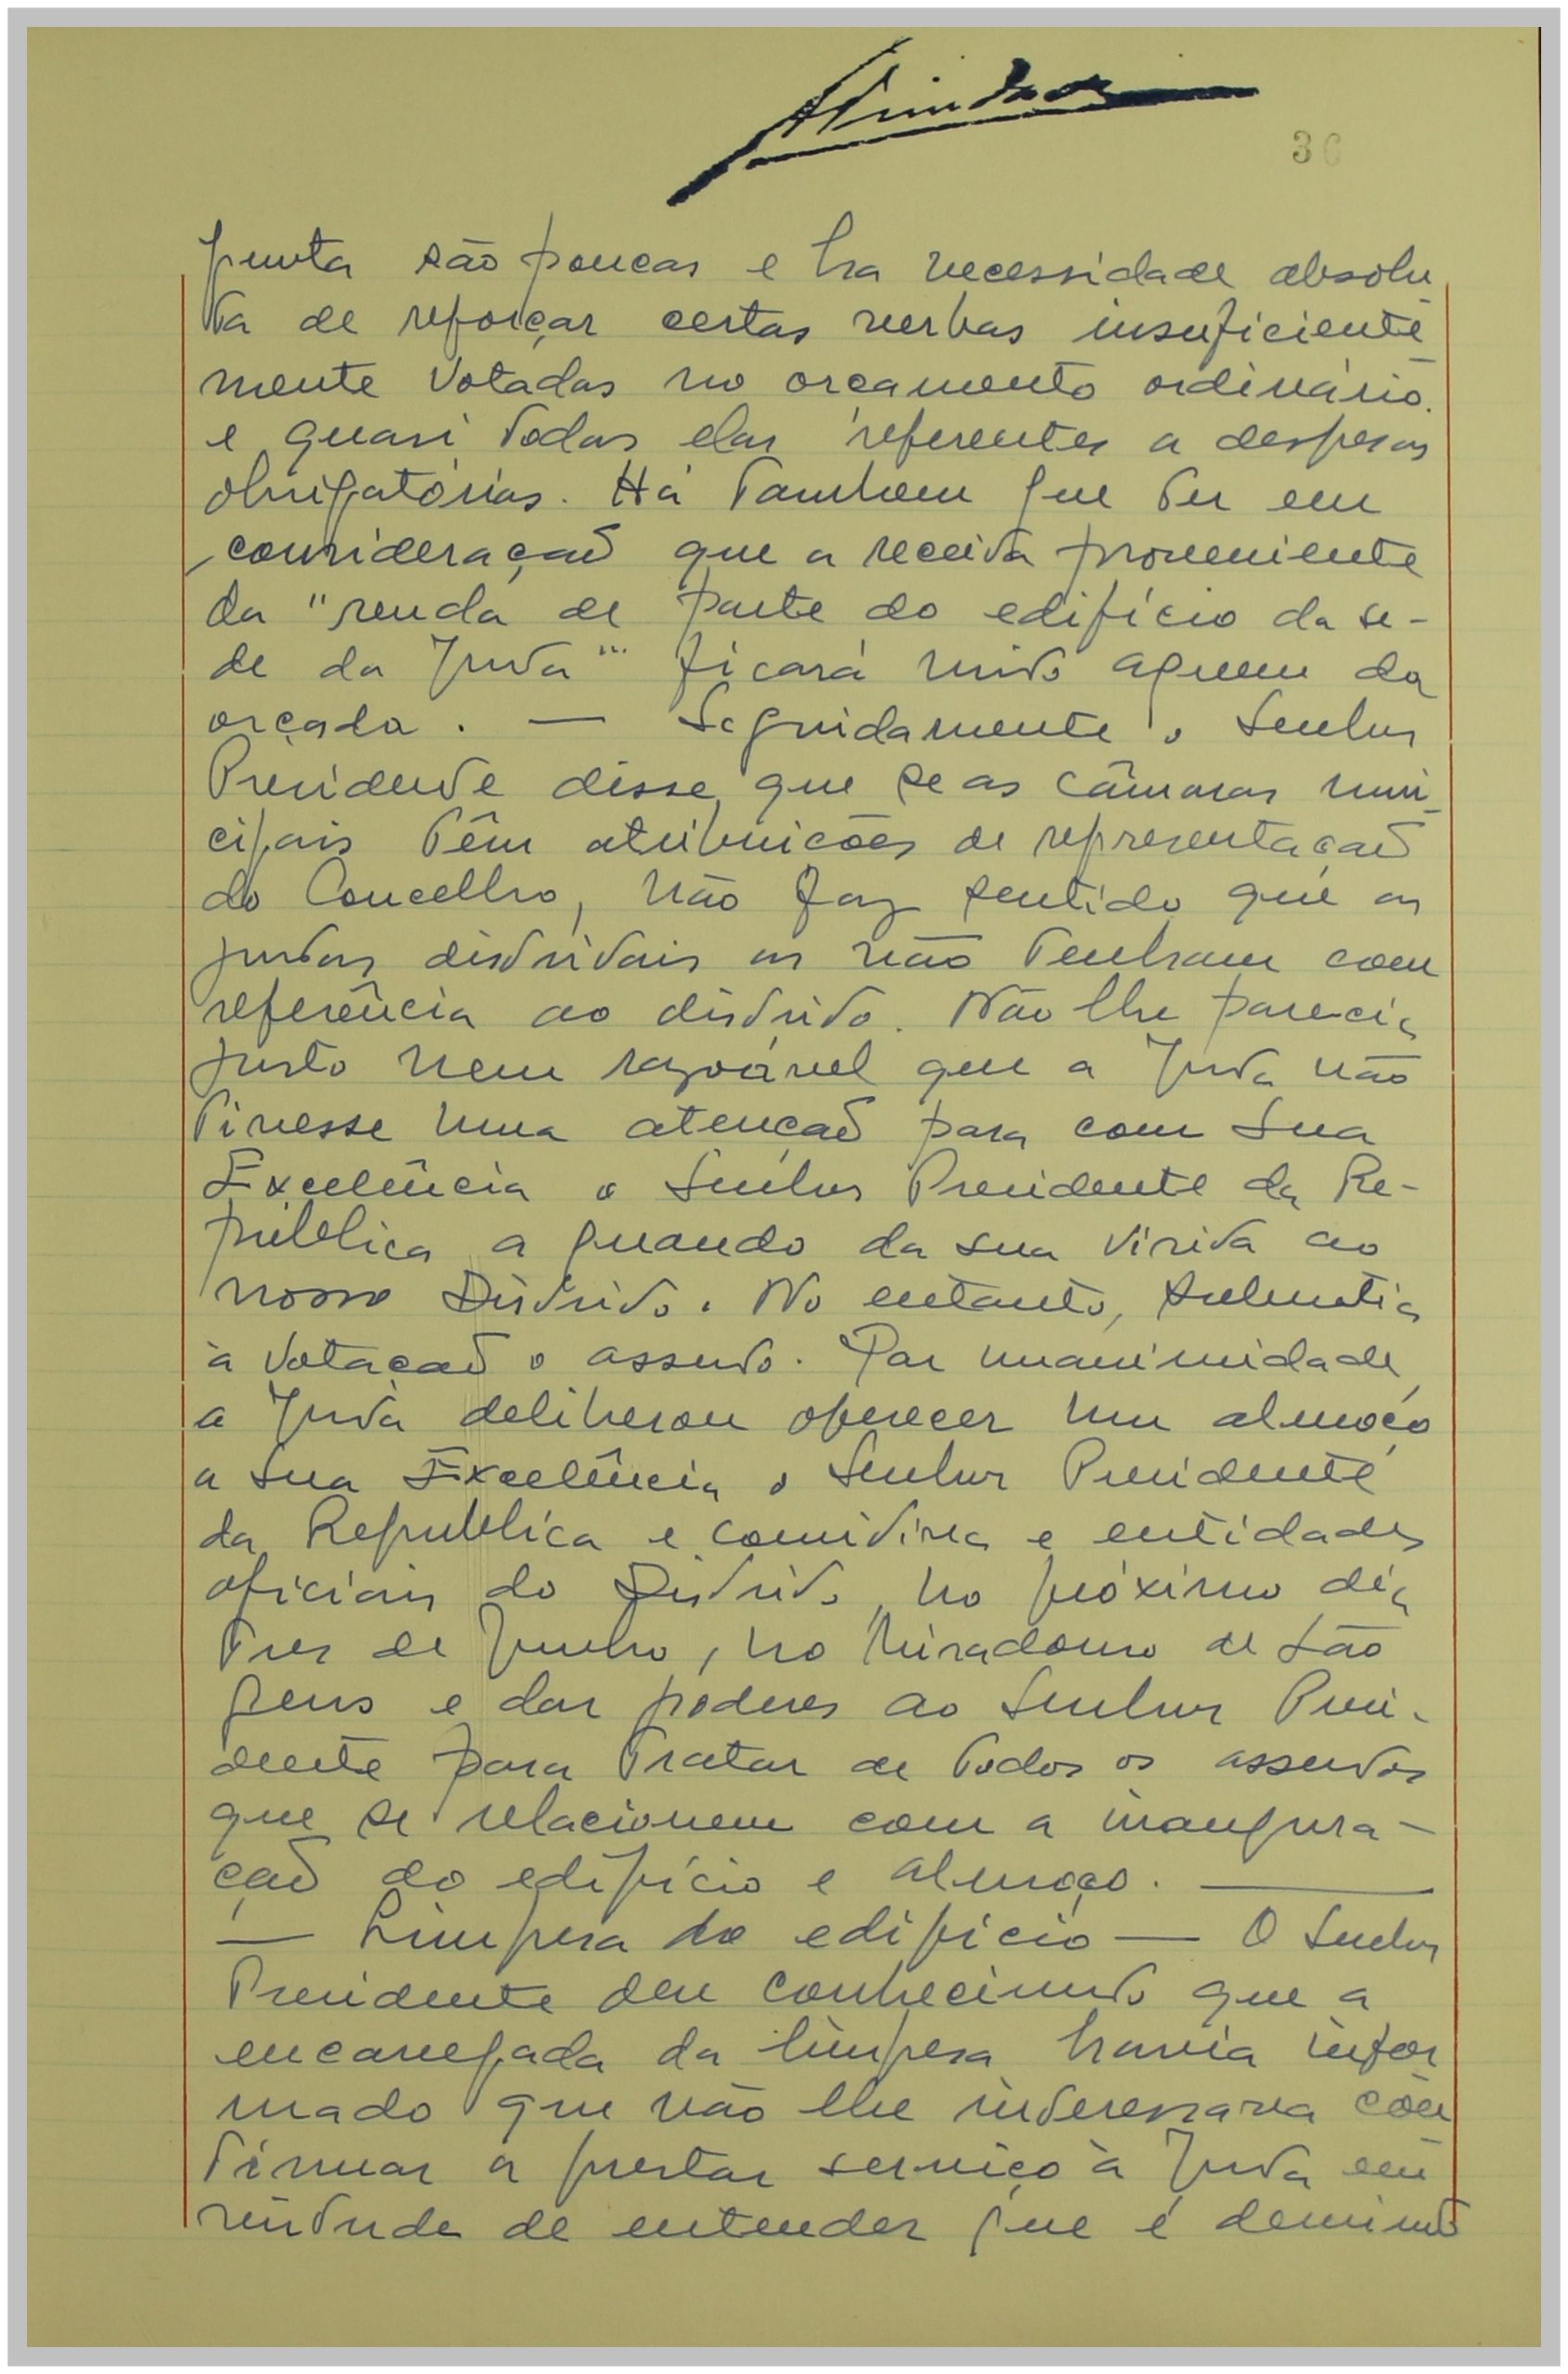 30
Junta são poucas e ha necessidade absolu
ta de reforçar certas verbas insuficiente
mente votadas no orçamento ordinário.
e quasi todas elas referentes a despesas
obrigatórias. Há tambem que ter em
consideração que a receita proveniente
da "renda de parte do edifício da se-
de da Junta" ficará muito aquem da
orçada. — Seguidamente o Senhor
Presidente disse que se as câmaras muni
cipais têm atribuicões de representação
do Concelho, não faz sentido que as
juntas distritais as não tenham com
referência ao distrito. Não lhe parecia
justo nem razoável que a Junta não
tivesse uma atenção para com Sua
Excelência o Senhor Presidente da Re-
pública a quando da sua visita ao
nosso Distrito. No entanto, submetia
à votação o assunto. Por unanimidade
a Junta deliberou oferecer um almoço
a Sua Excelência o Senhor Presidente
da República e comitiva e entidades
oficiais do Distrito, no próximo dia
tres de Junho, no Miradouro de São
Gens e dar poderes ao Senhor Presi-
dente para tratar de todos os assuntos
que se relacionem com a inaugura-
ção do edifício e almoço. —
— Limpesa do edifício — O Senhor
Presidente deu conhecimento que a
encarregada da limpesa havia infor
mado que não lhe interessava con
tinuar a prestar serviço à Junta em
virtude de entender que é deminuto